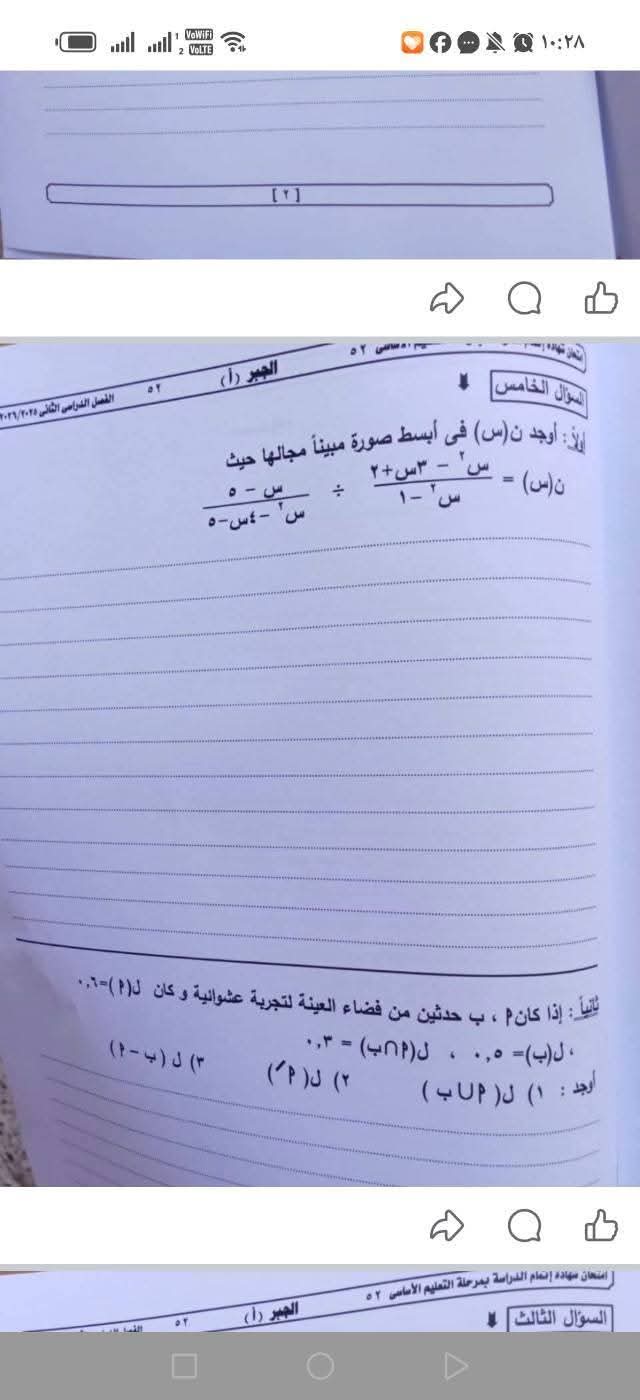 ١٠:٢٨
VoWiFi
VoLTE
[ ٢ ]
التعليم الأساسى ٥٢
٥٢ الجبر (أ) ٥٢ الفصل الدراسى الثانى ٢٠٢٦/٢٠٢٥
السؤال الخامس
أولاً : أوجد ن(س) فى أبسط صورة مبيناً مجالها حيث
ن(س) = (س² - ٣س+٢)/(س² - ١) ÷ (س - ٥)/(س² - ٤س-٥)
ثانياً : إذا كان م ، ب حدثين من فضاء العينة لتجربة عشوائية و كان ل(م)=٠,٦
، ل(ب)= ٠,٥ ، ل(م∩ب) = ٠,٣
أوجد : ١) ل( م∪ب ) ٢) ل( م′) ٣) ل (ب-م)
امتحان شهادة إتمام الدراسة بمرحلة التعليم الأساسى ٥٢
٥٢ الجبر (أ)
السؤال الثالث